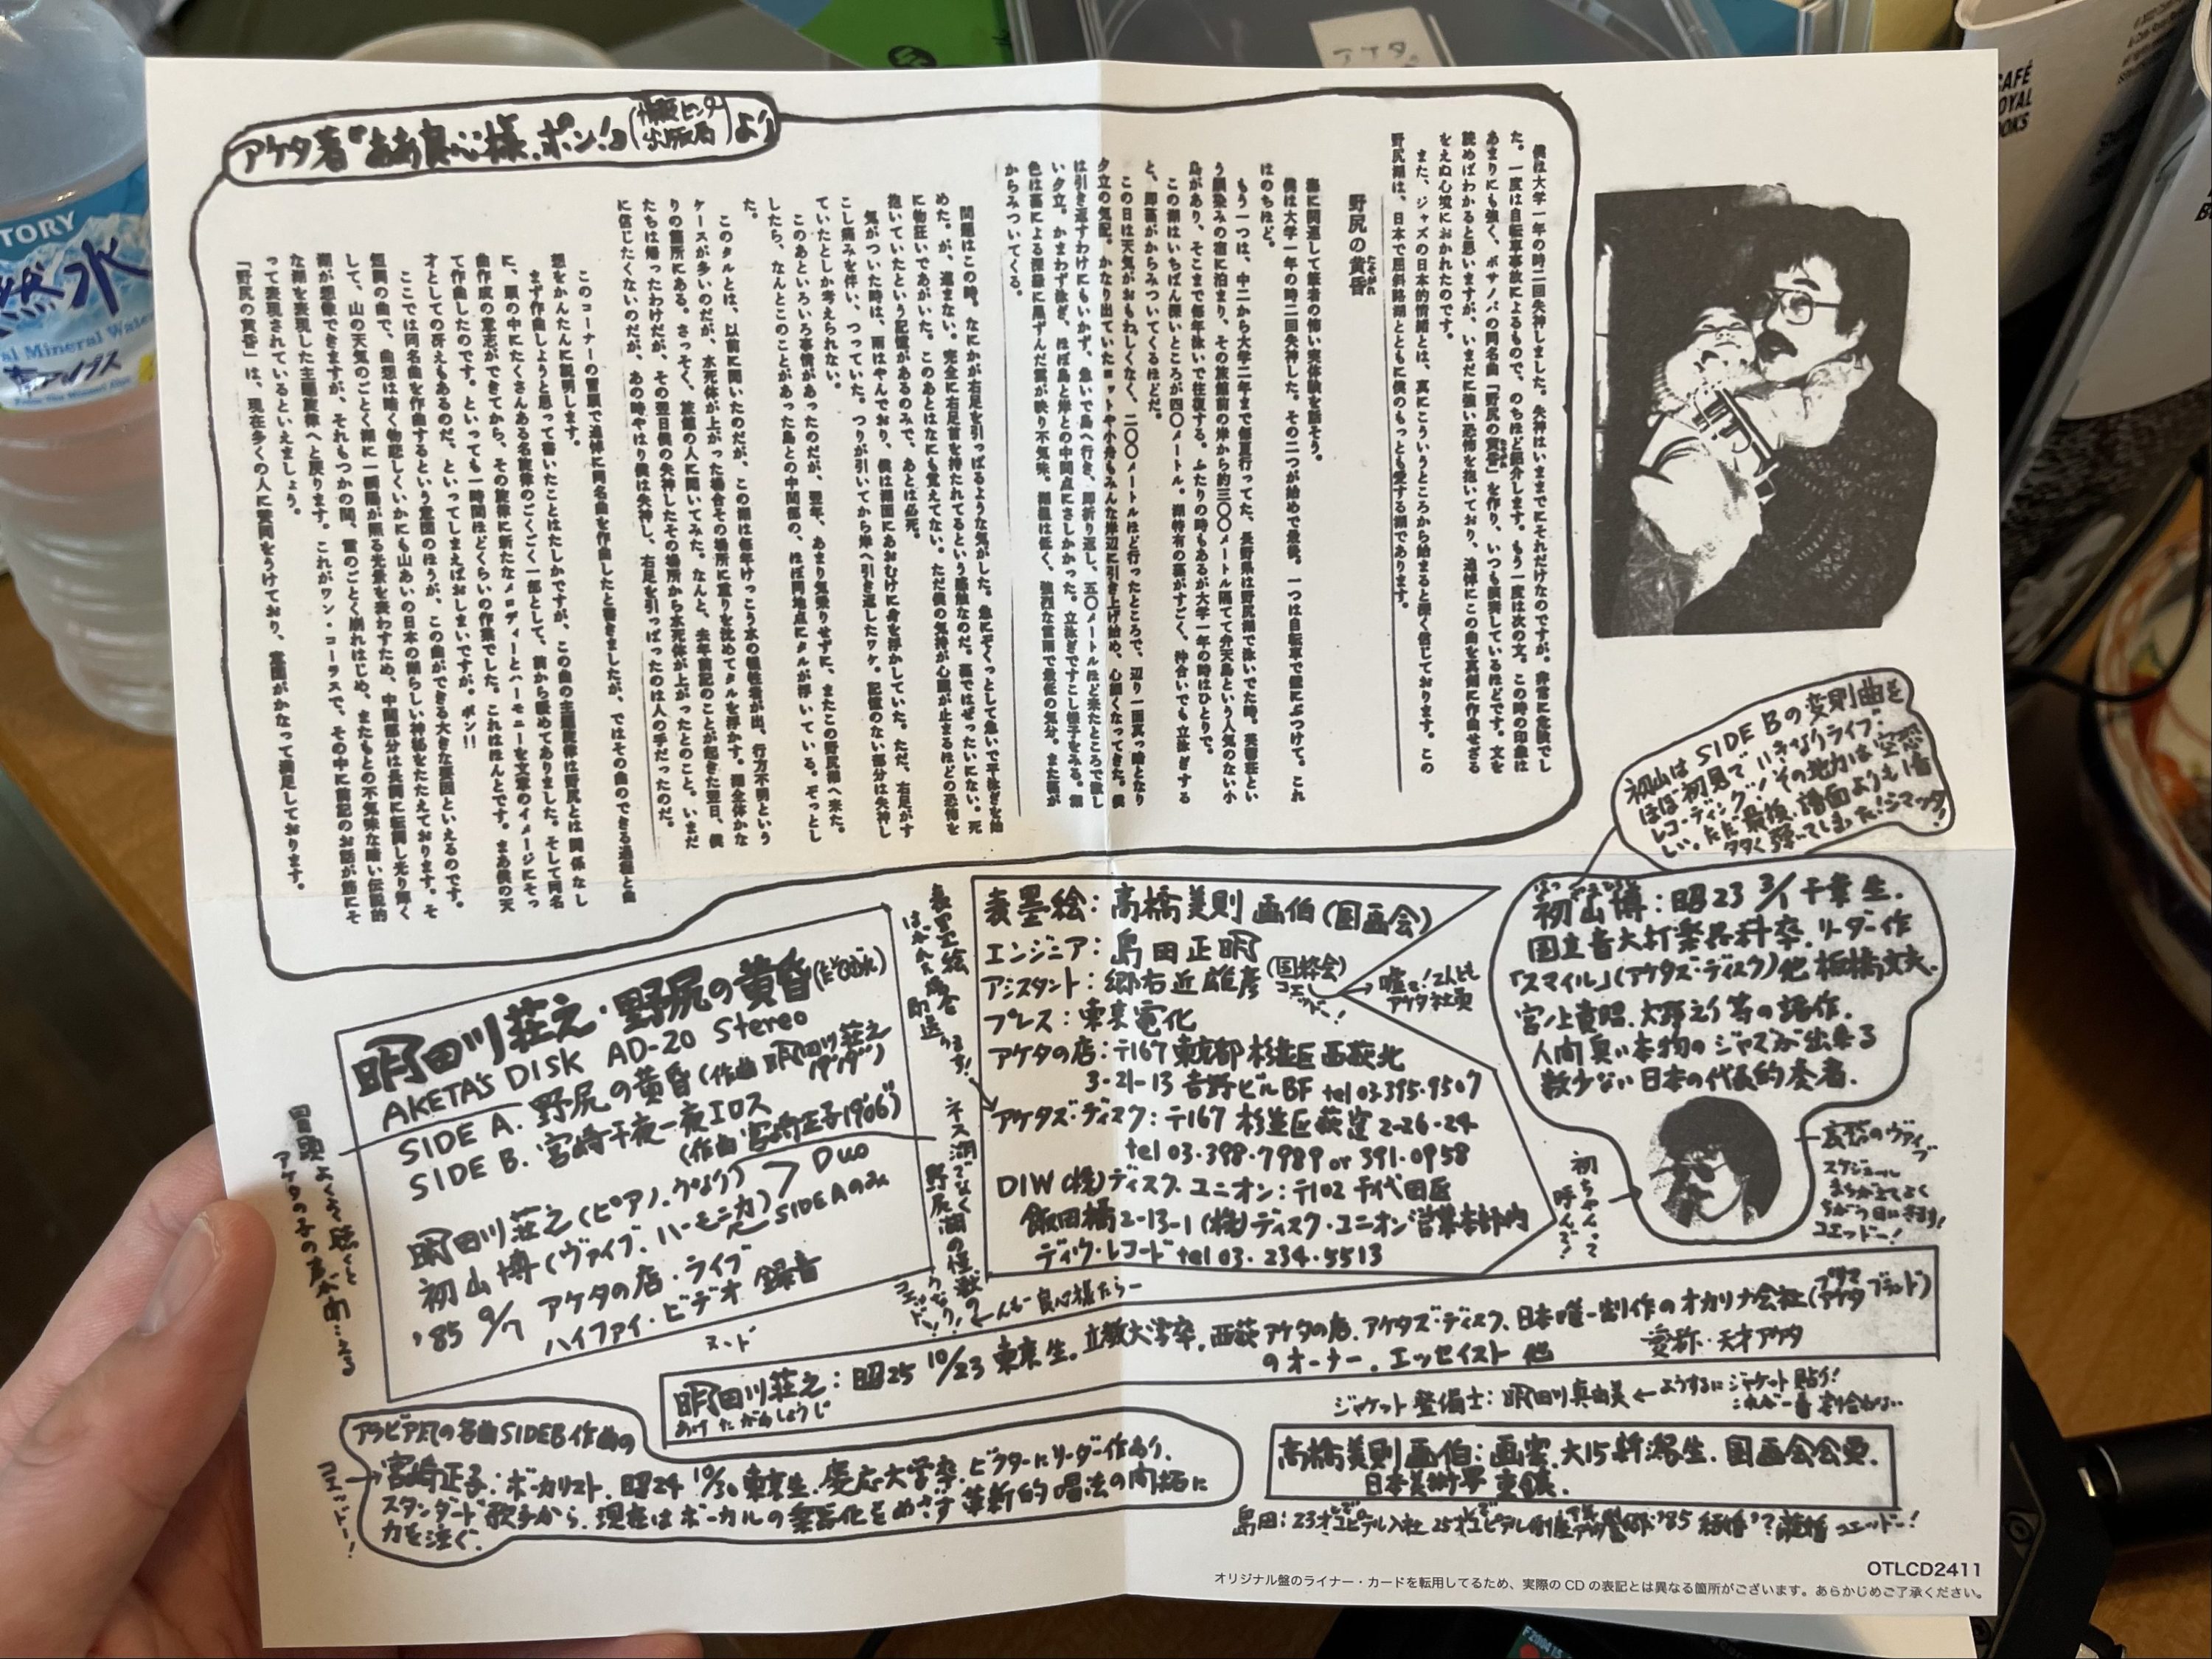 アケタ著『ああ良心様、ポン!』(情報センター出版局)より
僕は大学一年の時二回失神しました。失神はいままでにそれだけなのですが、非常に危険でし
た。一度は自転車事故によるもので、のちほど紹介します。もう一度は次の文。この時の印象は
あまりにも強く、ボサノバの同名曲「野尻の黄昏」を作り、いつも演奏しているほどです。文を
読めばわかると思いますが、いまだに強い恐怖を抱いており、追悼にこの曲を真剣に作曲せざる
をえぬ心境におかれたのです。
また、ジャズの日本的情緒とは、真にこういうところから始まると深く信じております。この
野尻湖は、日本で屈斜路湖とともに僕のもっとも愛する湖であります。
野尻の黄昏
たそがれ
毒に関連して筆者の怖い実体験を話そう。
僕は大学一年の時二回失神した。その二つが始めで最後。一つは自転車で壁にぶつけて。これ
はのちほど。
もう一つは、中二から大学二年まで毎夏行ってた、長野県は野尻湖で泳いでた時。
う馴染みの宿に泊まり、その旅館前の岸から約三〇〇メートル隔てて弁天島という人気のない小
島があり、そこまで毎年泳いで往復する。ふたりの時もあるが大学一年の時はひとりで。
この湖はいちばん深いところが四〇メートル。湖特有の藻がすごく、沖合いでも立泳ぎする
と、即藻がからみついてくるほどだ。
この日は天気がおもわしくなく、二〇〇メートルほど行ったところで、辺り一面真っ暗となり
夕立の気配。かなり出ていたヨットや小舟もみんな岸辺に引き上げ始め、心細くなってきた。僕
は引き返すわけにもいかず、急いで島へ行き、即折り返し、五〇メートルほど来たところで激し
い夕立。かまわず泳ぎ、ほぼ島と岸との中間点にさしかかった。立泳ぎですこし様子をみる。湖
色は藻による深緑に黒ずんだ雲が映り不気味。湖温は低く、強烈な雷雨で最低の気分。また藻が
からみついてくる。
問題はこの時。なにかが右足を引っぱるような気がした。急にぞくっとして急いで平泳ぎを始
めた。が、進まない。完全に右足首を持たれてるという感触なのだ。藻ではぜったいにない。死
に物狂いであがいた。このあとはなにも覚えてない。ただ僕の気持が心臓が止まるほどの恐怖を
抱いていたという記憶があるのみで、あとは必死。
気がついた時は、雨はやんでおり、僕は湖面にあおむけに身を浮かしていた。ただ、右足がす
こし痛みを伴い、つっていた。つりが引いてから岸へ引き返したワケ。記憶のない部分は失神し
ていたとしか考えられない。
このあといろいろ事情があったのだが、翌年、あまり気乗りせずに、またこの野尻湖へ来た。
したら、なんとこのことがあった島との中間部の、ほぼ同地点にタルが浮いている。ぞっとし
た。
このタルとは、以前に聞いたのだが、この湖は毎年けっこう水の犠牲者が出、行方不明という
ケースが多いのだが、水死体が上がった場合その場所に重りを沈めてタルを浮かす。湖全体かな
りの箇所にある。さっそく、旅館の人に聞いてみた。なんと、去年前記のことが起きた翌日、僕
たちは帰ったわけだが、その翌日僕の失神したその場所から水死体が上がったとのこと。いまだ
に信じたくないのだが、あの時やはり僕は失神し、右足を引っぱったのは人の手だったのだ。
このコーナーの冒頭で追悼に同名曲を作曲したと書きましたが、ではその曲のできる過程と曲
想をかんたんに説明します。
まず作曲しようと思って書いたことはたしかですが、この曲の主題旋律は野尻とは関係なし
に、頭の中にたくさんある名旋律のごくごく一部として、前から暖めてありました。そして同名
曲作成の意志ができてから、その旋律に新たなメロディーとハーモニーを文章のイメージにそっ
て作曲したのです。といっても一時間ほどくらいの作業でした。これはほんとです。まあ僕の天
才としての冴えもあるのだ、といってしまえばおしまいですが。ポン!!
ここでは同名曲を作曲するという意図のほうが、この曲ができる大きな要因といえるのです。そ
短調の曲で、曲想は暗く物悲しくいかにも山あいの日本の湖らしい神秘をたたえております。そ
して、山の天気のごとく湖に一瞬陽が照る光景を表わすため、中間部分は長調に転調し光り輝く
湖が想像できますが、それもつかの間、雷のごとく崩れはじめ、またもとの不気味な暗い伝説的
な湖を表現した主題旋律へと戻ります。これがワン・コーラスで、その中に前記のお話が笛にそ
って表現されているといえましょう。
「野尻の黄昏」は、現在多くの人に質問をうけており、意図がかなって満足しております。
初山はSIDE Bの変則曲を
ほぼ初見でいきなりライブ・
レコーディング!その地力は空恐
しい。ただ最後、譜面よりも1音
多く弾いてしまった!シマッタ!
初山博:昭23 3/1千葉生.
国立音大打楽器科卒.リーダー作
「スマイル」(アケタズ・ディスク)他 板橋文夫.
宮ノ上貴昭.大野えり等の諸作.
人間臭い本物のジャズが出来る
数少ない日本の代表的奏者.
初ちゃんって
呼んで!
表墨絵:高橋美則画伯(国画会)
エンジニア:島田正明
アシスタント:郷右近雄彦(国粋会)
コエッドー!
嘘で!2人とも
アケタ社員
プレス:東京電化
アケタの店:〒167 東京都杉並区西荻北
3-21-13 吉野ビルBF tel 03.395.9507
アケタズ・ディスク:〒167 杉並区荻窪 2-26-24
tel 03.398.7989 or 391.0958
DIW (株)ディスク.ユニオン:〒102 千代田区
飯田橋2-13-1 (株)ディスク・ユニオン営業本部内
ディウ・レコード tel 03.234.5513
明田川荘之・野尻の黄昏(たそがれ)
AKETA'S DISK AD-20 Stereo
SIDE A. 野尻の黄昏(作曲 明田川荘之
SIDE B. 宮崎千夜一夜エロス
(作曲 宮崎正子1906)
明田川荘之(ピアノ.うなり)
初山博(ヴァイブ.ハーモニカ) Duo
SIDE Aのみ
'85 9/7 アケタの店・ライブ
ハイファイ・ビデオ 録音
冒頭よくよく聴くと
アケタの子の声が聞こえる
ネス湖でなく
野尻湖の怪獣
んもー良心様たらー
明田川荘之:昭25 10/23 東京生.立教大学卒.西荻アケタの店.アケタズ・ディスク、日本唯一割作のオカリナ会社(プリマ アケタ ブランド)
のオーナー.エッセイスト他 愛称・天才アケタ
あけたがわしょうじ
ジャケット整備士:明田川真由美←ようするにジャケット貼り!
これが一番割合わない
アラビア風の名曲SIDEB作曲の
宮崎正子:ボーカリスト.昭24 10/30 東京生.慶応大学卒.ビクターにリーダー作あり.
スタンダード歌手から.現在はボーカルの楽器化をめざす革新的唱法の開拓に
力を注ぐ.
コエッドー!
高橋美則画伯:画家.大15新潟生.国画会会員.
日本美術界重鎮.
OTLCD2411
オリジナル盤のライナー・カードを転用してるため、実際のCDの表記とは異なる箇所がございます。あらかじめご了承ください。